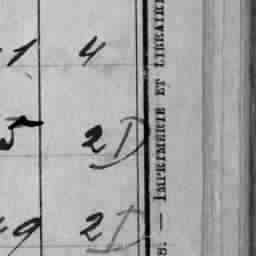 1 4
5 2D
9 2D
8. — IMPRIMERIE ET LIBRAIRI